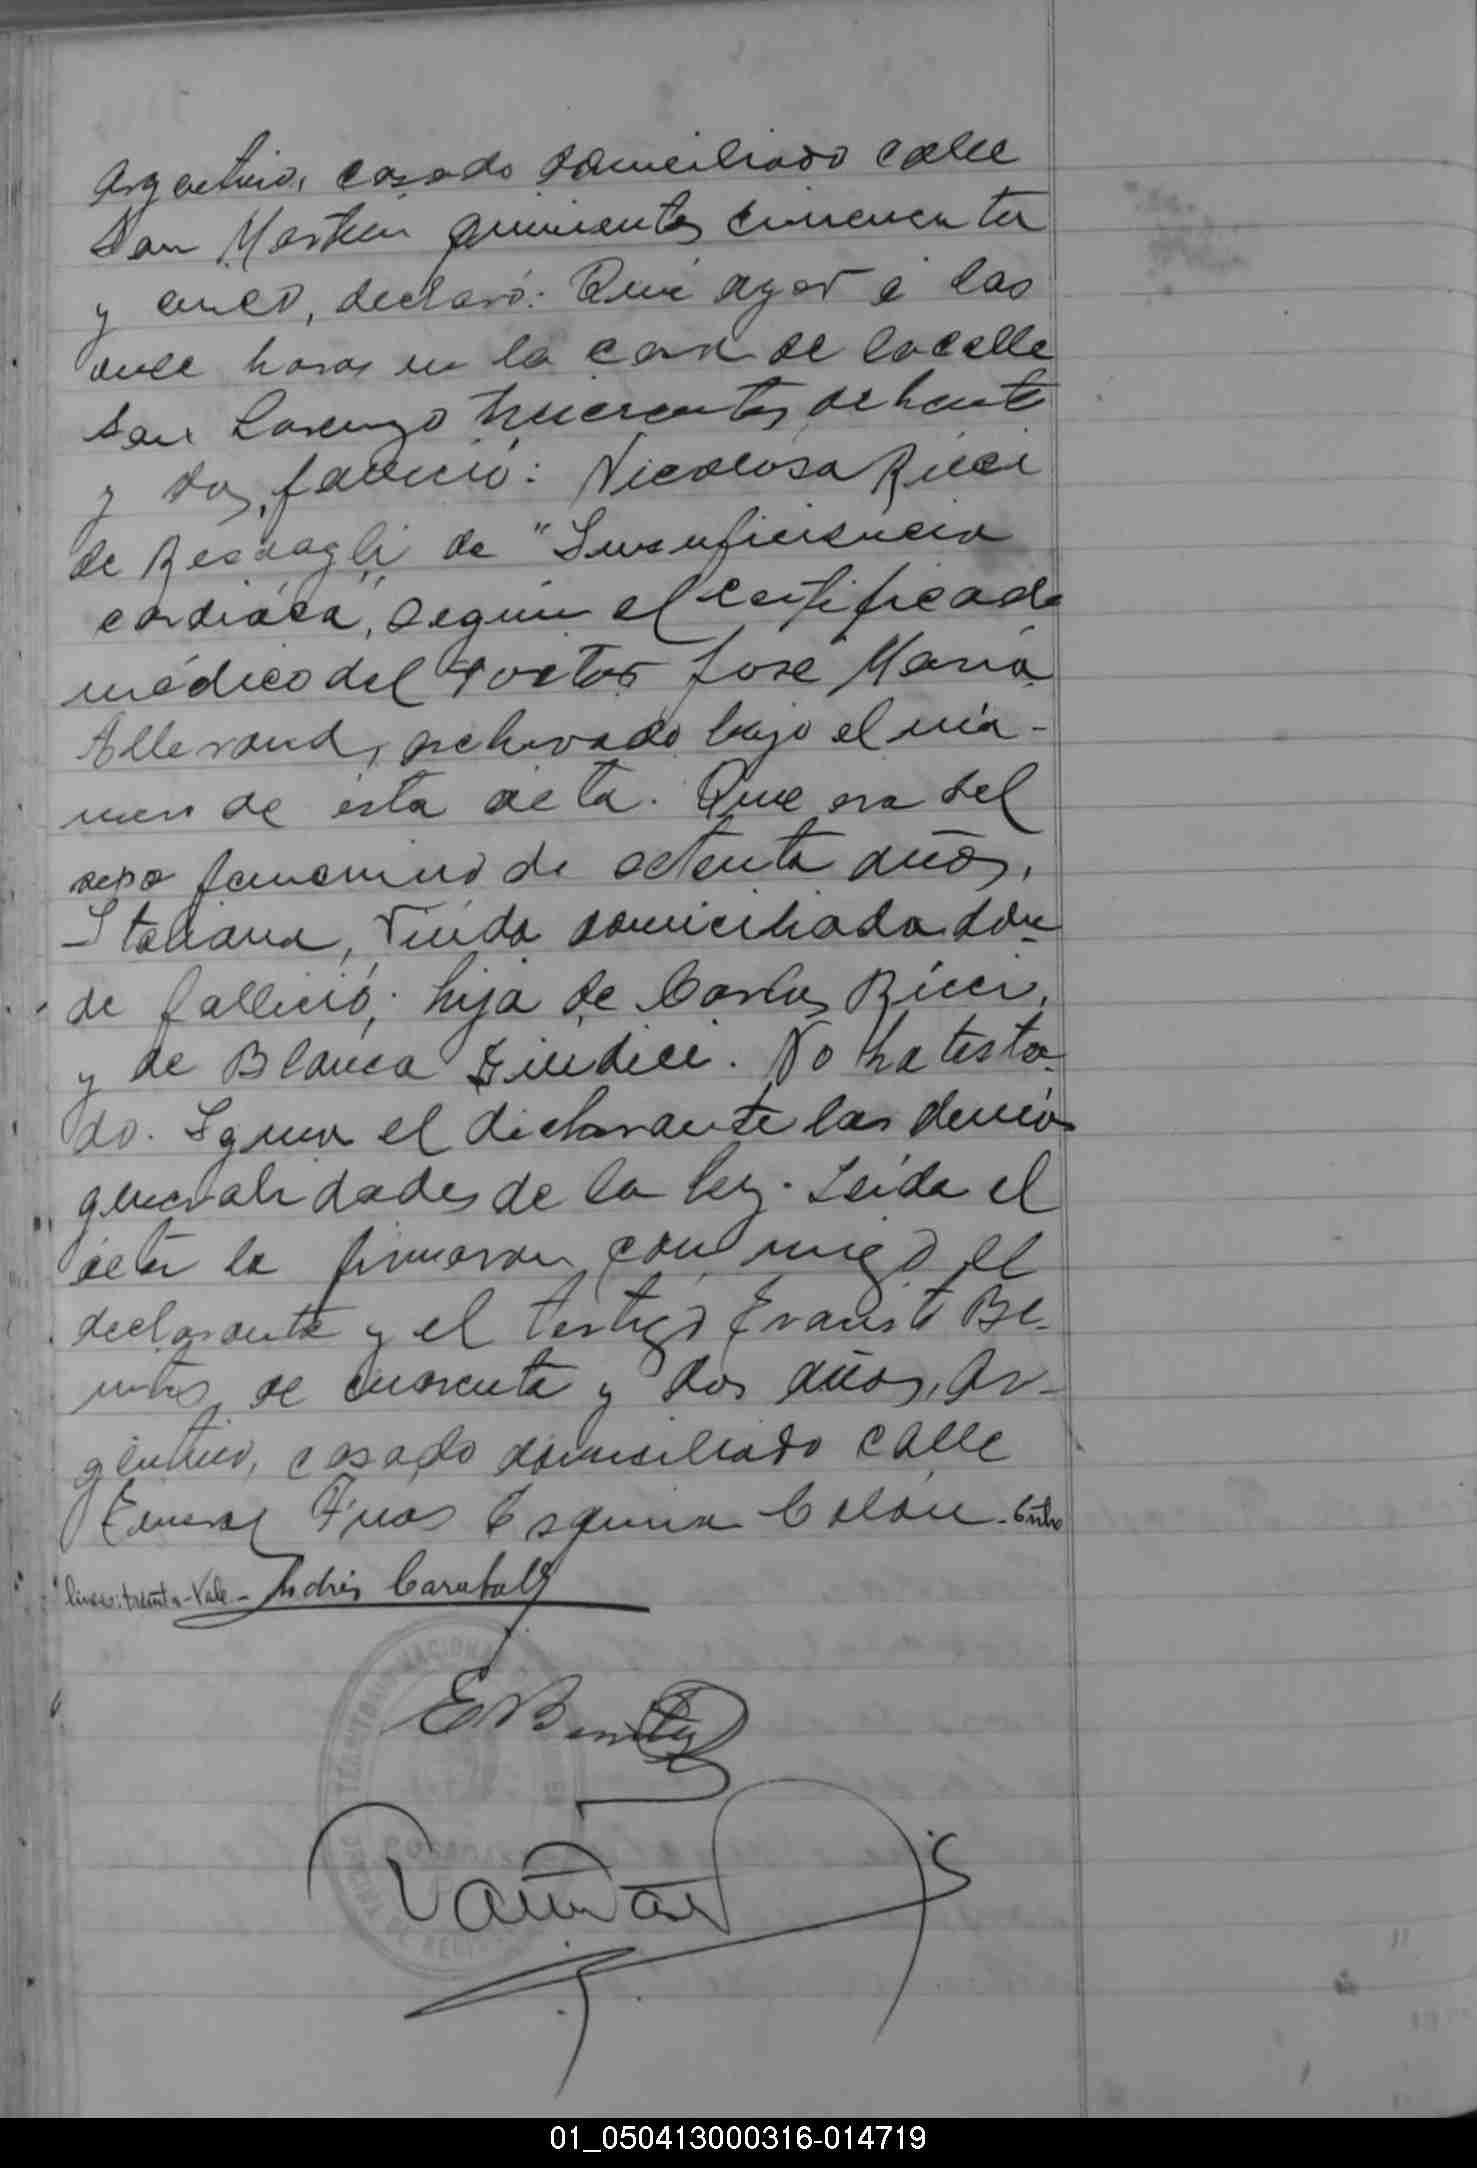 Argentino, casado domiciliado calle
San Martin quinientos cincuenta
y cinco, declaró: Que ayer á las
once horas en la casa de la calle
San Lorenzo trescientos ochenta
y dos, falleció: Nicolosa Ricci
de Besuagli de "Insuficiencia
cardiáca", según el certificado
médico del Doctor José María
Allerand, archivado bajo el nú-
mero de ésta acta. Que era del
sexo femenino de ochenta años,
Italiana, Viuda domiciliada don-
de falleció; hija de Carlos Ricci,
y de Blanca Giudici. No ha testa-
do. Ignora el declarante las demás
generalidades de la ley. Leída el
acta la firmaron conmigo el
declarante y el testigo Evaristo Be-
nites, de cuarenta y dos años, Ar-
gentino, casado domiciliado calle
General Frias Esquina Colón. Entre
lineas: treinta-Vale- Andrés Carabaly
E Benitez
TERRITORIO NACIONAL
POSADAS
01_050413000316-014719